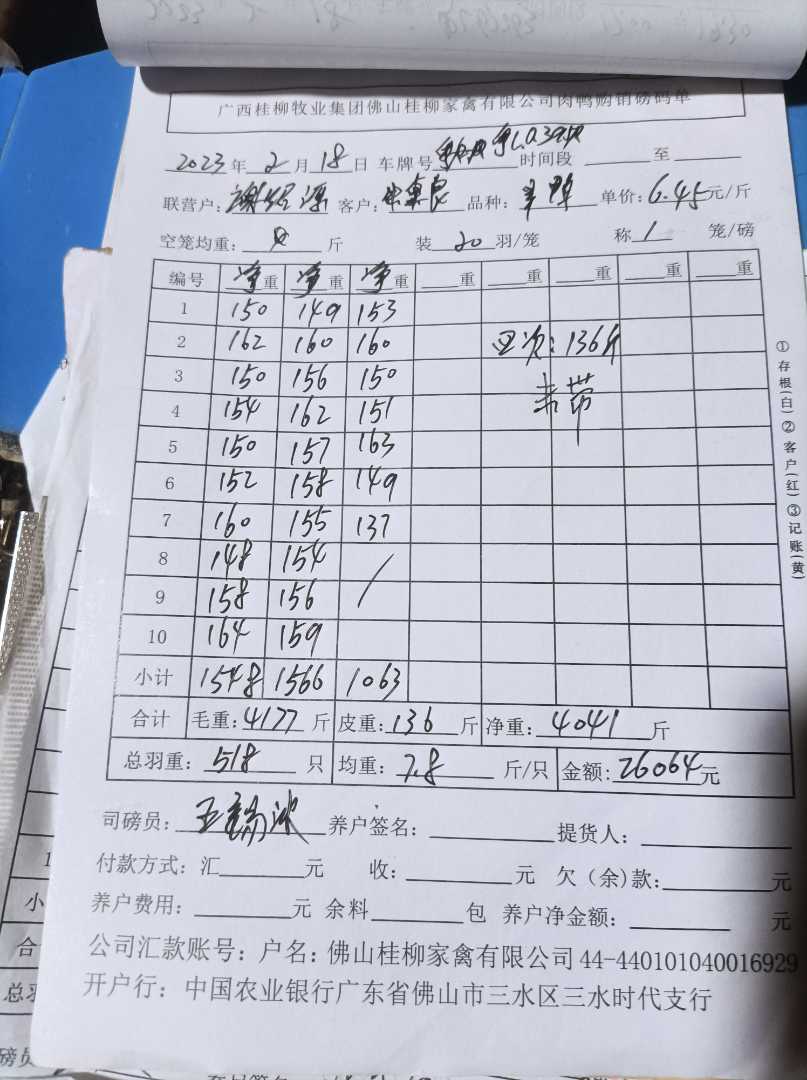 广西桂柳牧业集团佛山桂柳家禽有限公司肉鸭购销磅码单
2023年2月18日 车牌号 时间段 至
联营户: 客户: 品种: 单价: 6.45元/斤
空笼均重: 斤 装20羽/笼 称1笼/磅
编号 净重 净重 净重 重 重 重 重 重
1 150 149 153
2 162 160 160 四次: 136斤
3 150 156 150 未带
4 154 162 151
5 150 157 163
6 152 158 149
7 160 155 137
8 148 154 /
9 158 156
10 164 159
小计 1548 1566 1063
合计 毛重: 4177斤 皮重: 136斤 净重: 4041斤
总羽重: 518只 均重: 7.8斤/只 金额: 26064元
司磅员: 养户签名: 提货人:
付款方式: 汇 元 收: 元 欠(余)款: 元
养户费用: 元 余料 包 养户净金额: 元
公司汇款账号: 户名: 佛山桂柳家禽有限公司 44-440101040016929
开户行: 中国农业银行广东省佛山市三水区三水时代支行
①存根(白)②客户(红)③记账(黄)